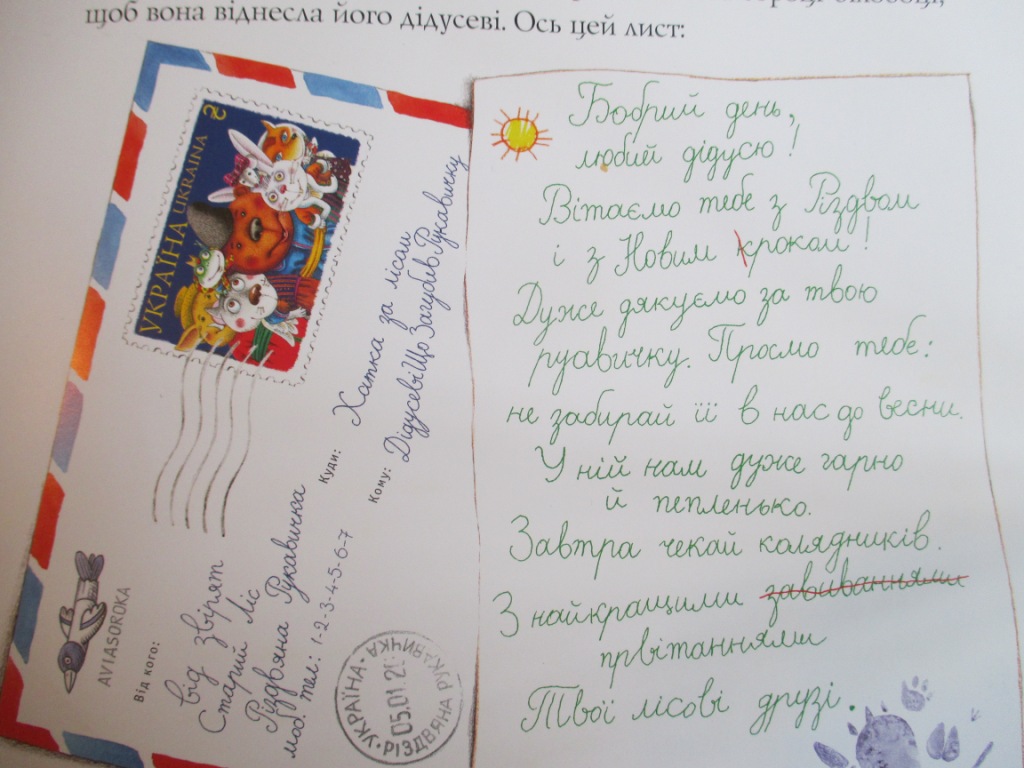 щоб вона віднесла його дідусеві. Ось цей лист:
УКРАЇНА UKRAINA
AVIASOROKA
Від кого:
від звірят
Старий ліс
Різдвяна Рукавичка
моб. тел.: 1-2-3-4-5-6-7
Куди:
Хатка за лісом
Кому:
ДідусевіЩоЗагубивРукавичку
УКРАЇНА · РІЗДВЯНА РУКАВИЧКА
05.01.2
Бобрий день,
любий дідусю!
Вітаємо тебе з Різдвом
і з Новим кроком!
Дуже дякуємо за твою
руавичку. Просмо тебе:
не забирай її в нас до весни.
У ній нам дуже гарно
й пепленько.
Завтра чекай колядників.
З найкращими завиваннями
првітаннями
Твої лісові друзі.